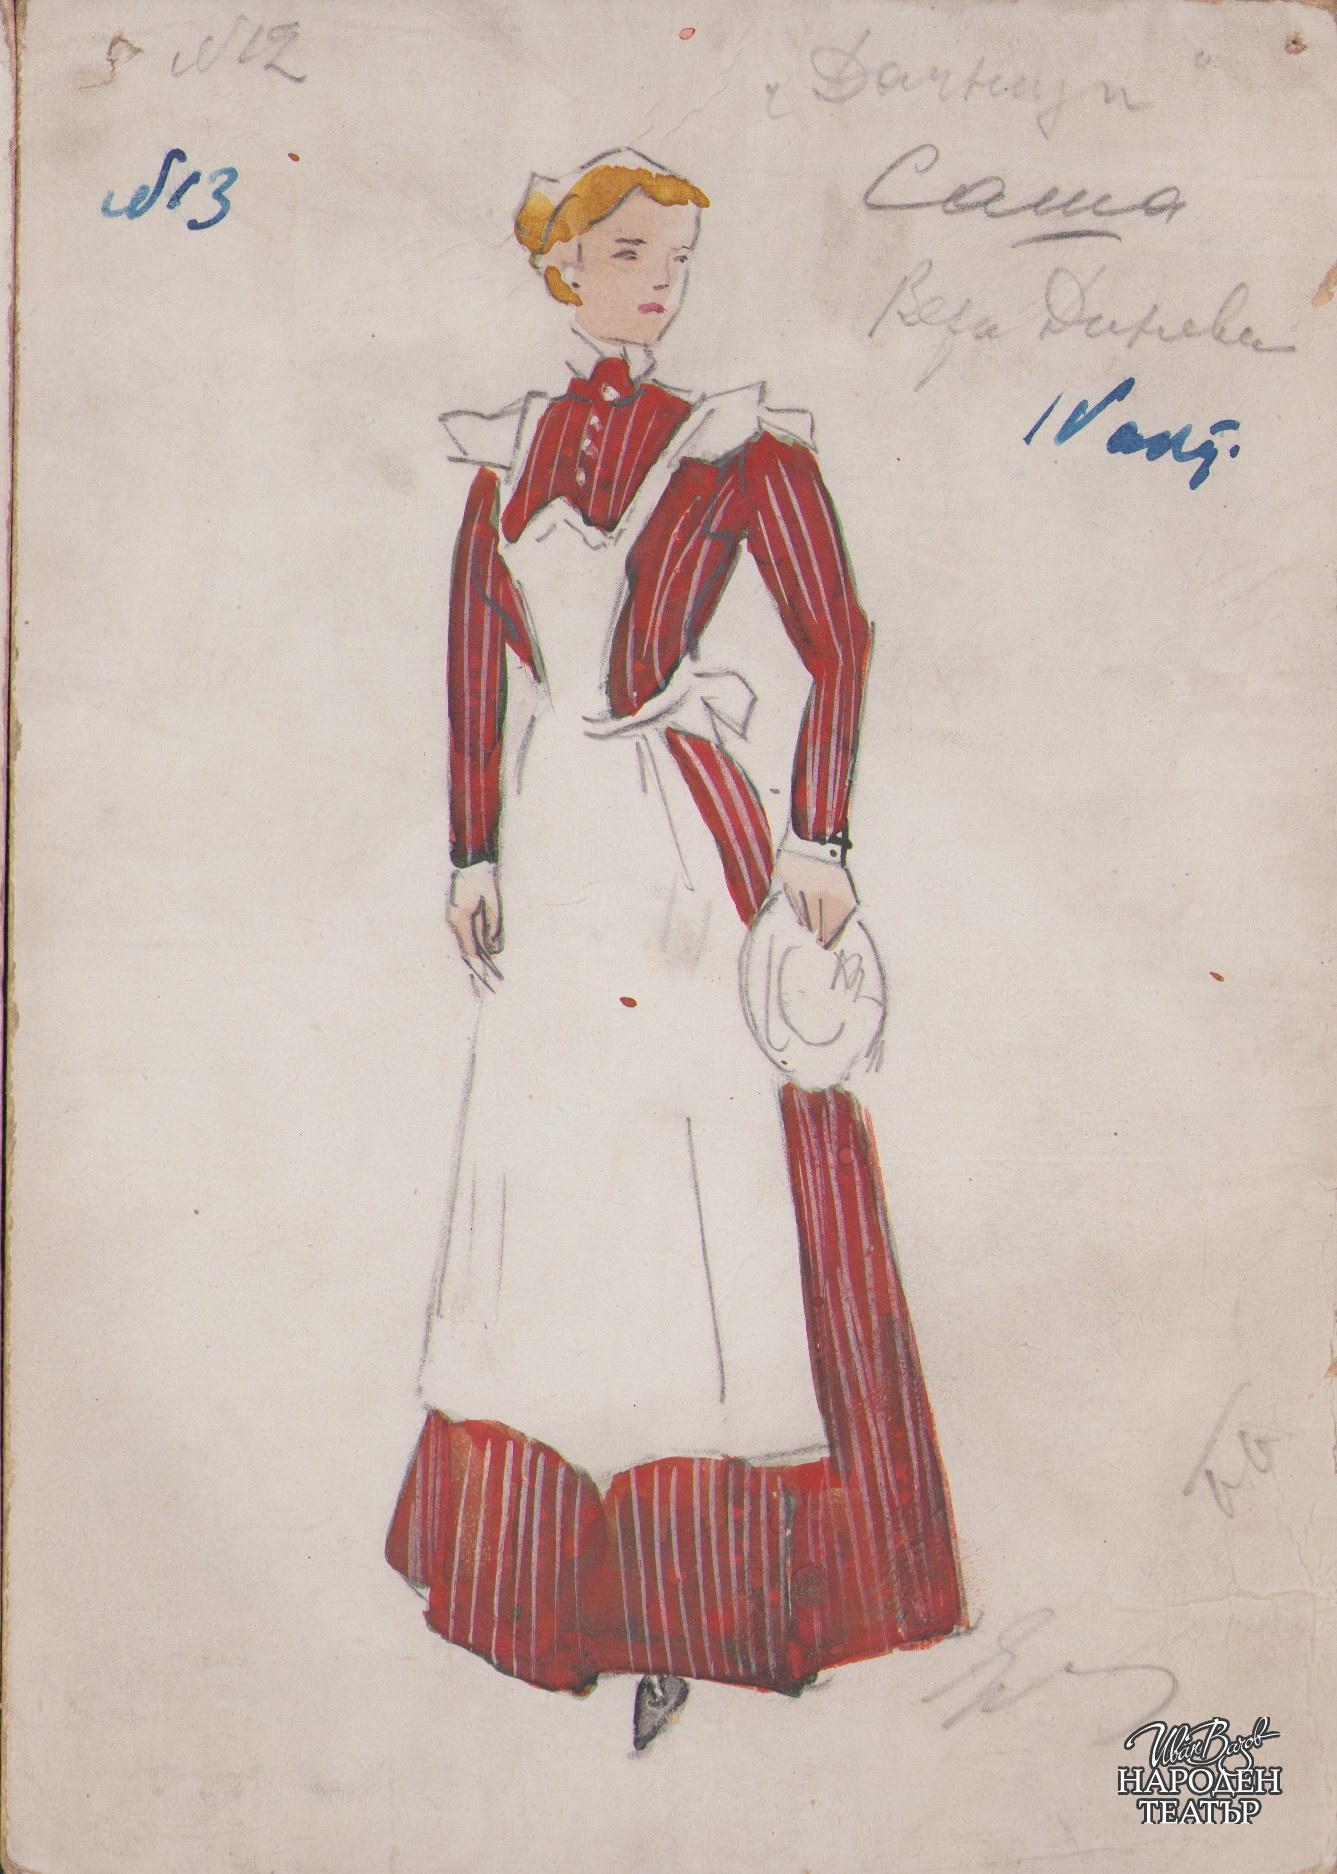 №12
„Дачници“
№13
Саша
Вера Динева
IV акт.
Иван Вазов
НАРОДЕН
ТЕАТЪР